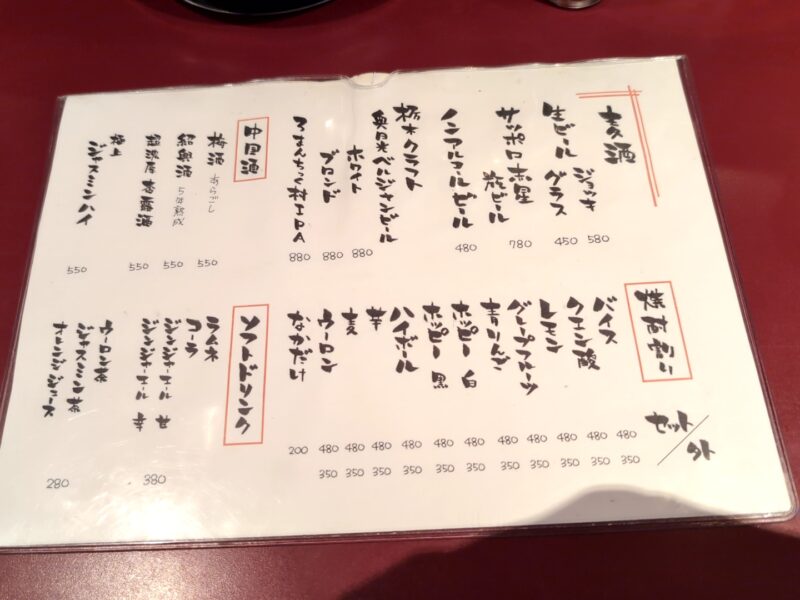 麦酒
生ビール ジョッキ 580
グラス 450
サッポロ赤星 瓶ビール 780
ノンアルコールビール 480
栃木クラフト
奥日光ベルジャンビール
ホワイト 880
ブロンド 880
ろまんちっく村IPA 880
中国酒
梅酒 あらごし 550
紹興酒 5年熟成 550
杏露酒 550
極上 ジャスミンハイ 550
焼酎割り
セット/外
バイス 480 350
クエン酸 480 350
レモン 480 350
グレープフルーツ 480 350
青りんご 480 350
ホッピー 白 480 350
ホッピー 黒 480 350
ハイボール 480 350
芋 480 350
麦 480 350
ウーロン 480 350
なかだけ 200
ソフトドリンク
ラムネ
コーラ
ジンジャーエール 甘
ジンジャーエール 辛 380
ウーロン茶
ジャスミン茶
オレンジジュース 280